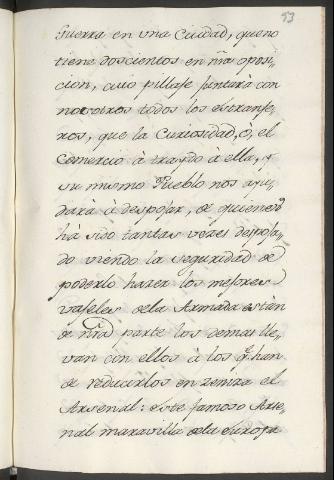 53
Guerra en vna Ciudad, que no
tiene doscientos en nr̃a oposi-
cion, cuio pillaje juntará con
nosotros todos los estranje-
ros, que la Curiosidad, ó, el
Comercio à traydo à ella, y
su mismo Pueblo nos ayu-
dará à despojar, de quienes
há sido tantas vezes despoja-
do viendo la seguridad de
poderlo hazer los mejores
vajeles de la Armada están
de nr̃a parte los demas lle-
van con ellos à los q̃ han
de reducirlos en zeniza el
Arsenal: este famoso Arse-
nal maravilla de la Europa